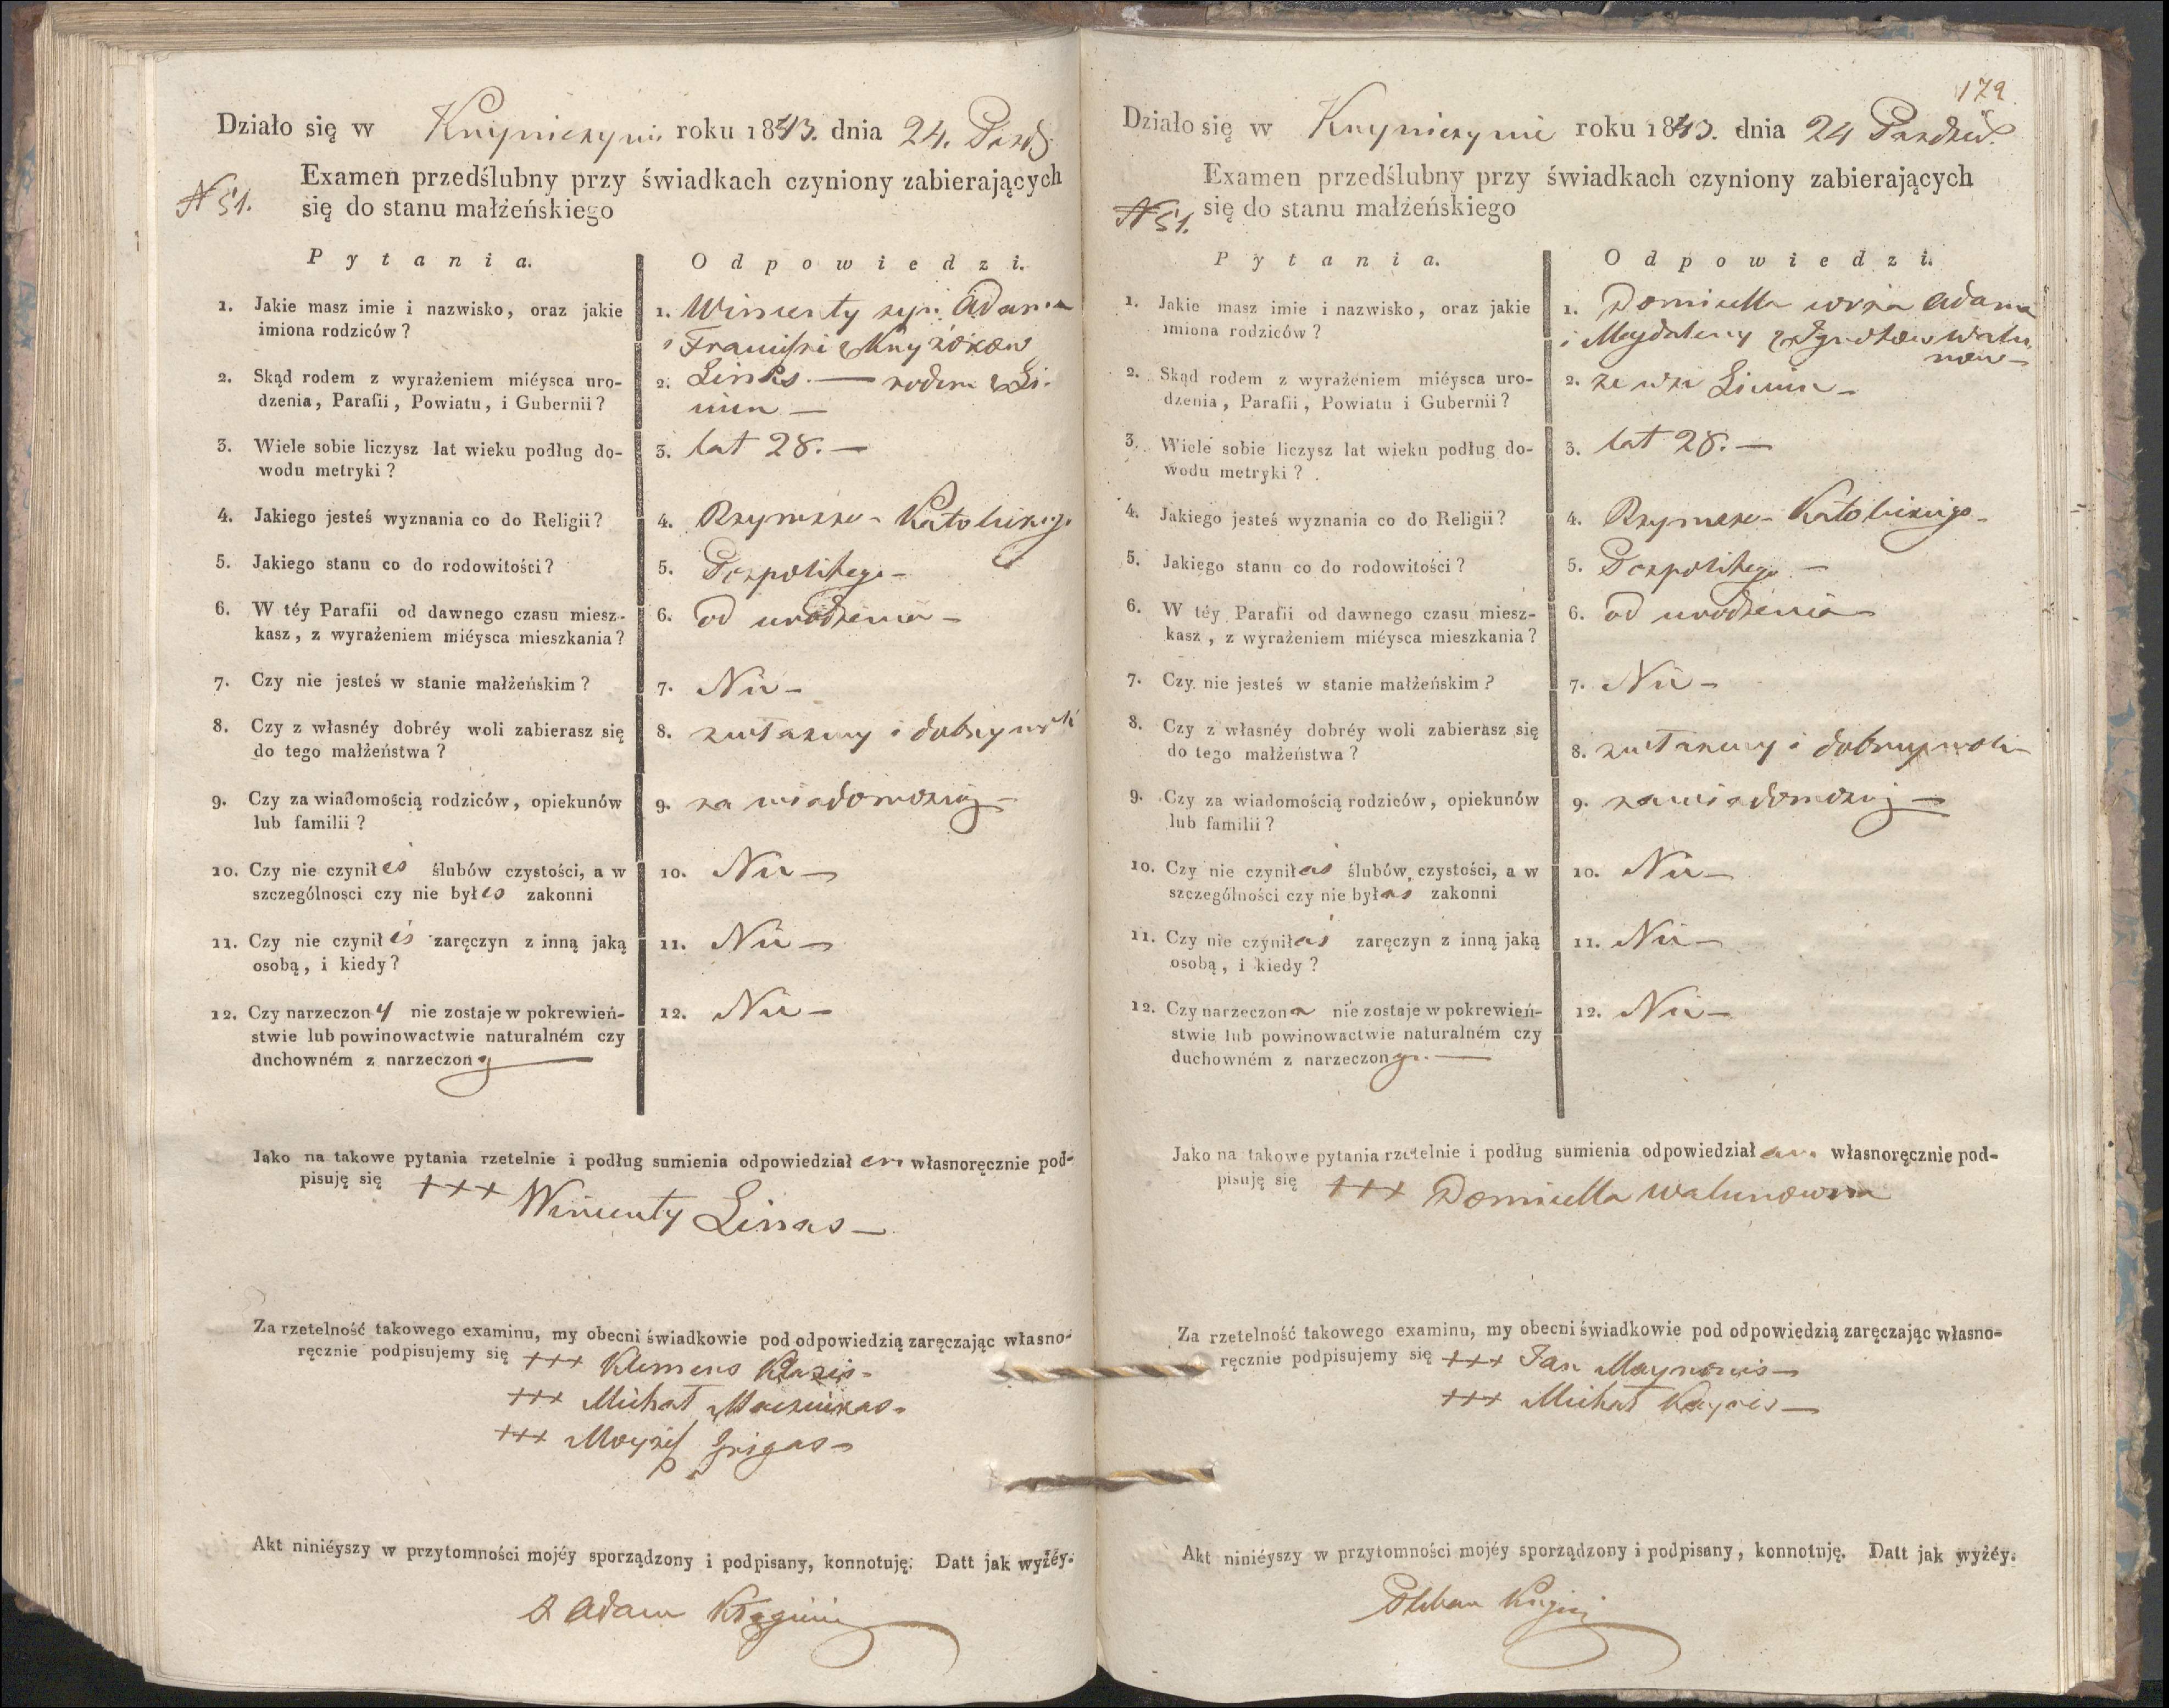 Działo się w Knyniczynie roku 1843. dnia 24. Pazdz.
Examen przedślubny przy świadkach czyniony zabierających
N 51. się do stanu małżeńskiego
Pytania. Odpowiedzi.
1. Jakie masz imie i nazwisko, oraz jakie
imiona rodziców?
1. Wincenty syn Adama
i Franciszki z
2. Skąd rodem z wyrażeniem miéysca uro-
dzenia, Parafii, Powiatu, i Gubernii?
2. Linkas. — rodem z Li-
3. Wiele sobie liczysz lat wieku podług do-
wodu metryki?
3. lat 28. —
4. Jakiego jesteś wyznania co do Religii?
4. Rzymsko-Katolickiego
5. Jakiego stanu co do rodowitości?
5. Pospolitego —
6. W téy Parafii od dawnego czasu miesz-
kasz, z wyrażeniem miéysca mieszkania?
6. od urodzenia —
7. Czy nie jesteś w stanie małżeńskim?
7. Nie —
8. Czy z własnéy dobréy woli zabierasz się
do tego małżeństwa?
8. z własney i dobrey woli
9. Czy za wiadomością rodziców, opiekunów
lub familii?
9. za wiadomością —
10. Czy nie czyniłeś ślubów czystości, a w
szczególnosci czy nie byłeś zakonni
10. Nie —
11. Czy nie czyniłeś zaręczyn z inną jaką
osobą, i kiedy?
11. Nie —
12. Czy narzeczony nie zostaje w pokrewień-
stwie lub powinowactwie naturalném czy
duchowném z narzeczoną
12. Nie —
Jako na takowe pytania rzetelnie i podług sumienia odpowiedziałem własnoręcznie pod-
pisuję się +++ Wincenty Linkas —
Za rzetelność takowego examinu, my obecni świadkowie pod odpowiedzią zaręczając własno-
ręcznie podpisujemy się +++ Klemens
+++ Michał
+++ Moyżesz Grigas —
Akt niniéyszy w przytomności mojéy sporządzony i podpisany, konnotuję. Datt jak wyżéy.
X Adam
179
Działo się w Knyniczynie roku 1843. dnia 24 Pazdzier.
Examen przedślubny przy świadkach czyniony zabierających
N 51. się do stanu małżeńskiego
Pytania. Odpowiedzi.
1. Jakie masz imie i nazwisko, oraz jakie
imiona rodziców?
1. Domicella córka Adama
i Magdaleny z
2. Skąd rodem z wyrażeniem miéysca uro-
dzenia, Parafii, Powiatu i Gubernii?
2. ze wsi
3. Wiele sobie liczysz lat wieku podług do-
wodu metryki?
3. lat 28. —
4. Jakiego jesteś wyznania co do Religii?
4. Rzymsko-Katolickiego —
5. Jakiego stanu co do rodowitości?
5. Pospolitego —
6. W téy Parafii od dawnego czasu miesz-
kasz, z wyrażeniem miéysca mieszkania?
6. od urodzenia —
7. Czy nie jesteś w stanie małżeńskim?
7. Nie —
8. Czy z własnéy dobréy woli zabierasz się
do tego małżeństwa?
8. z własney i dobrey woli —
9. Czy za wiadomością rodziców, opiekunów
lub familii?
9. za wiadomością —
10. Czy nie czyniłaś ślubów czystości, a w
szczególności czy nie byłaś zakonni
10. Nie —
11. Czy nie czyniłaś zaręczyn z inną jaką
osobą, i kiedy?
11. Nie —
12. Czy narzeczona nie zostaje w pokrewień-
stwie lub powinowactwie naturalném czy
duchowném z narzeczonym —
12. Nie —
Jako na takowe pytania rzetelnie i podług sumienia odpowiedziałam własnoręcznie pod-
pisuję się +++ Domicella Walunowna
Za rzetelność takowego examinu, my obecni świadkowie pod odpowiedzią zaręczając własno-
ręcznie podpisujemy się +++ Jan
+++ Michał
Akt niniéyszy w przytomności mojéy sporządzony i podpisany, konnotuję. Datt jak wyżéy.
Pleban